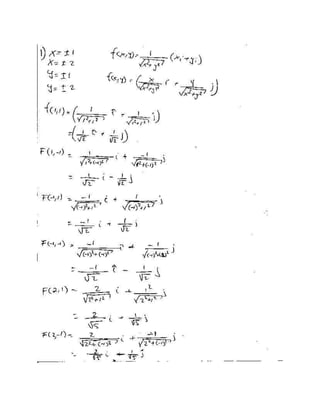 1) x = ±1 f(x,y) = 1/√(x²+y²) (xi + yj)
x = ±2
y = ±1 f(x,y) = (x/√(x²+y²) i + y/√(x²+y²) j)
y = ±2
f(1,1) = (1/√(1²+1²) i + 1/√(1²+1²) j)
= (1/√2 i + 1/√2 j)
F(1,-1) = 1/√(1²+(-1)²) i + -1/√(1²+(-1)²) j
= 1/√2 i - 1/√2 j
F(-1,1) = -1/√((-1)²+1²) i + 1/√((-1)²+1²) j
= -1/√2 i + 1/√2 j
F(-1,-1) = -1/√((-1)²+(-1)²) i + -1/√((-1)²+(-1)²) j
= -1/√2 i - 1/√2 j
F(2,1) = 2/√(2²+1²) i + 1/√(2²+1²) j
= 2/√5 i + 1/√5 j
F(2,-1) = 2/√(2²+(-1)²) i + -1/√(2²+(-1)²) j
= 2/√5 i + 1/√5 j